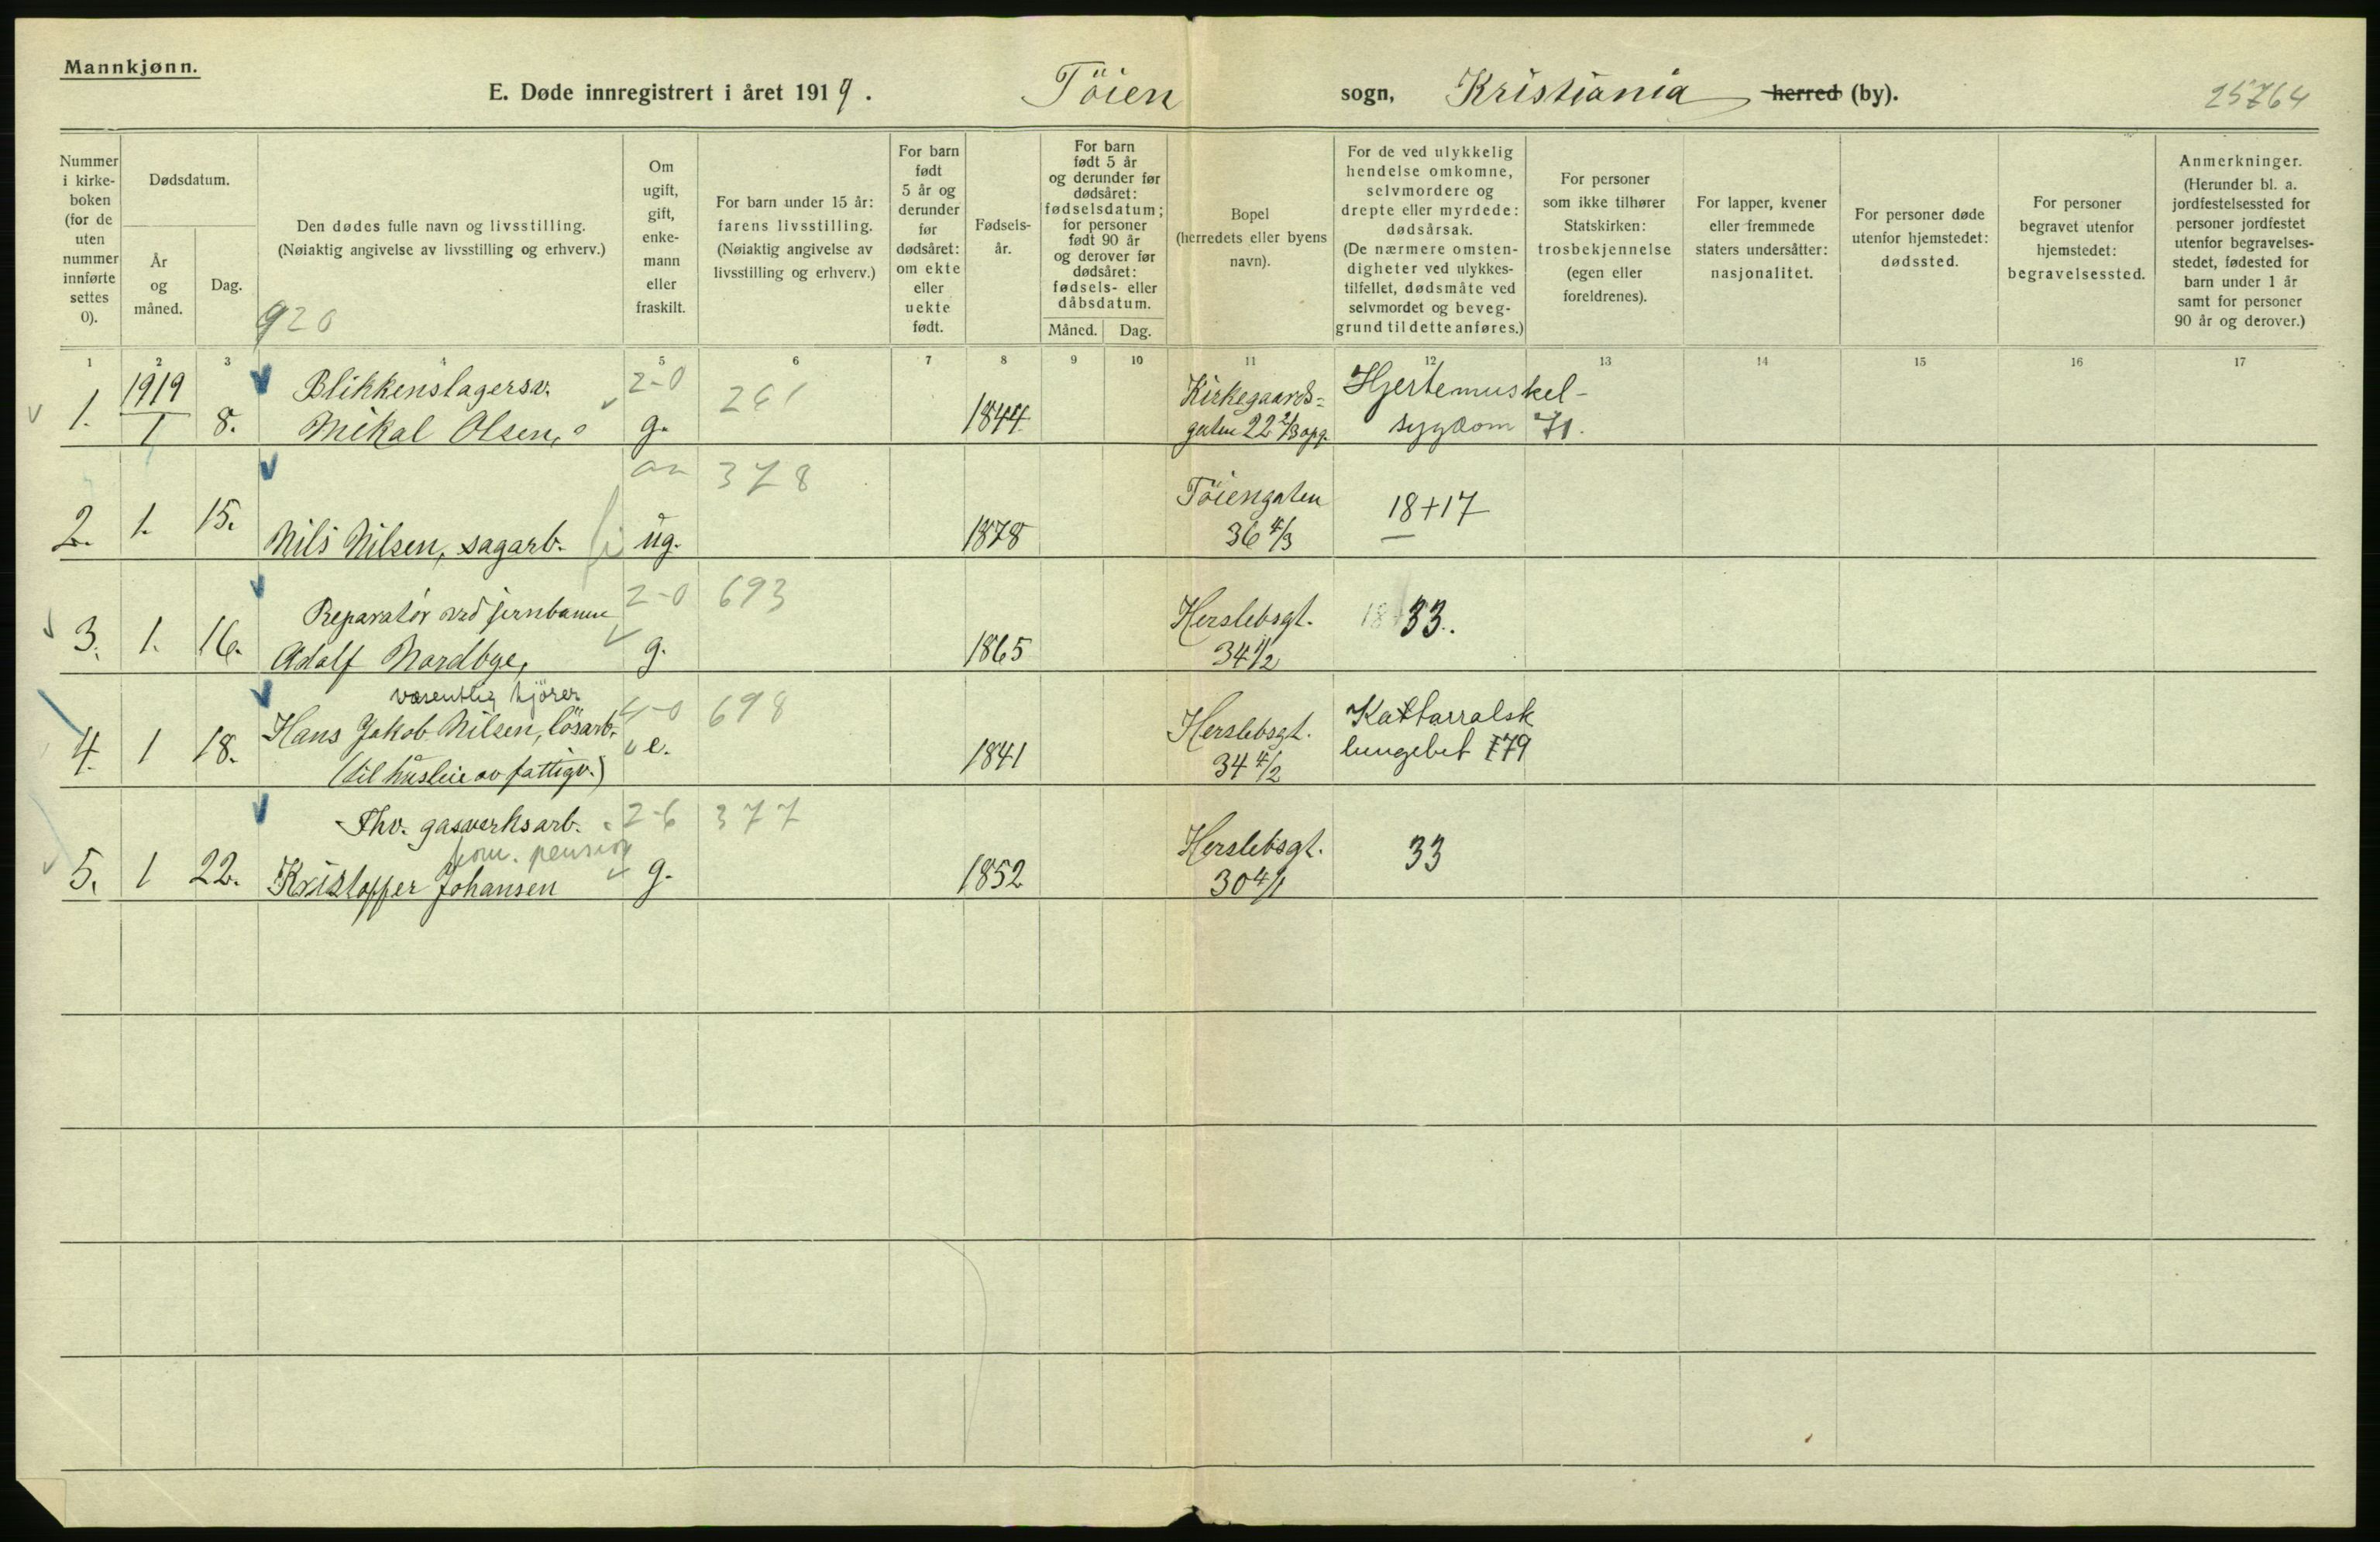 Mannkjønn.
E. Døde innregistrert i året 1919. Töien sogn, Kristiania herred (by). 25764
Nummer i kirkeboken (for de uten nummer innførte settes 0).
Dødsdatum.
År og måned.
Dag.
Den dødes fulle navn og livsstilling.
(Nøiaktig angivelse av livsstilling og erhverv.)
920
Om ugift, gift, enkemann eller fraskilt.
For barn under 15 år: farens livsstilling.
(Nøiaktig angivelse av livsstilling og erhverv.)
For barn født 5 år og derunder før dødsåret: om ekte eller uekte født.
Fødselsår.
For barn født 5 år og derunder før dødsåret: fødselsdatum; for personer født 90 år og derover før dødsåret: fødsels- eller dåbsdatum.
Måned. Dag.
Bopel (herredets eller byens navn).
For de ved ulykkelig hendelse omkomne, selvmordere og drepte eller myrdede: dødsårsak.
(De nærmere omstendigheter ved ulykkestilfellet, dødsmåte ved selvmordet og beveggrund til dette anføres.)
For personer som ikke tilhører Statskirken: trosbekjennelse (egen eller foreldrenes).
For lapper, kvener eller fremmede staters undersåtter: nasjonalitet.
For personer døde utenfor hjemstedet: dødssted.
For personer begravet utenfor hjemstedet: begravelsessted.
Anmerkninger.
(Herunder bl. a. jordfestelsessted for personer jordfestet utenfor begravelsesstedet, fødested for barn under 1 år samt for personer 90 år og derover.)
1 2 3 4 5 6 7 8 9 10 11 12 13 14 15 16 17
1919 Blikkenslagersv. 2-0 261 Kirkegaards- Hjertemuskel-
1. 1 8. Mikal Olsen, g. 1844 gaten 22 2/3 opg. sygdom 71.
378 Töiengaten 18+17
2. 1. 15. Nils Nilsen, sagarb. ug. 1878 36 4/3
Reparatör ved jernbanen 2-0 693 Herslebsgt. 33.
3. 1. 16. Adolf Nordbye, g. 1865 34 1/2
væsentlig kjörer
Hans Jakob Nilsen, lösarb. 4-0 698 Herslebsgt. Kattarralsk
4. 1 18. (til husleie av fattigv.) e. 1841 34 4/2 lungebet 79
Fhv. gasverksarb. 2-6 377 Herslebsgt. 33
kom. pension
5. 1 22. Kristoffer Johansen g. 1852 30 4/1